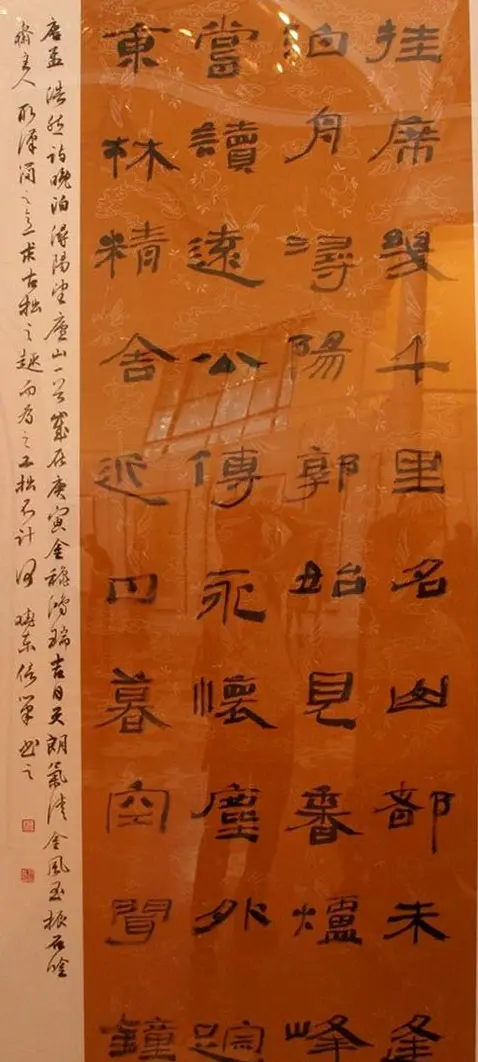 挂席幾千里名山都未逢
泊舟潯陽郭始見香爐峰
當讀遠公傳永懷塵外蹤
東林精舍近日暮空聞鐘
唐孟浩然詩晚泊潯陽望廬山一首歲在庚寅金穐鴻瑞吉日天朗氣清金風玉振石唫
齋主人取漢簡之意求古拙之趣而為之工拙不計曉東信筆書之